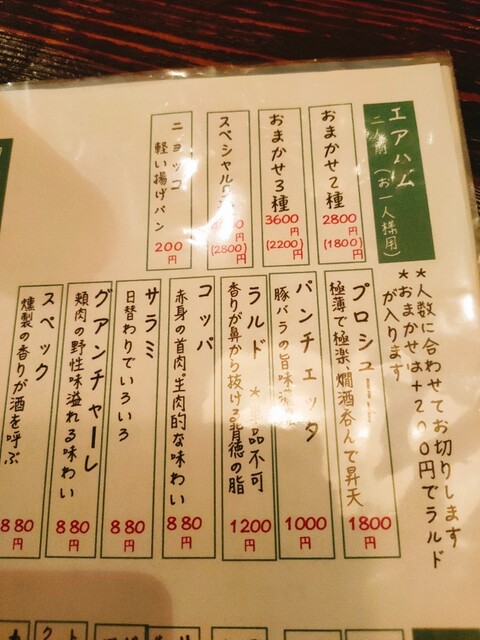 エアハム
二人前(お一人様用)
おまかせ2種
2800円
(1800)
おまかせ3種
3600円
(2200)
スペシャル
円
(2800)
ニョッコ
軽い揚げパン
200円
*人数に合わせてお切りします
*おまかせは+200円でラルド
が入ります
プロシュー
極薄で極楽、燗酒呑んで昇天
1800円
パンチェッタ
豚バラの旨味
1000円
ラルド
*単品不可
香りが鼻から抜ける背徳の脂
1200円
コッパ
赤身の首肉。生肉的な味わい
880円
サラミ
日替わりでいろいろ
880円
グアンチャーレ
頬肉の野性味溢れる味わい
880円
スペック
燻製の香りが酒を呼ぶ
880円